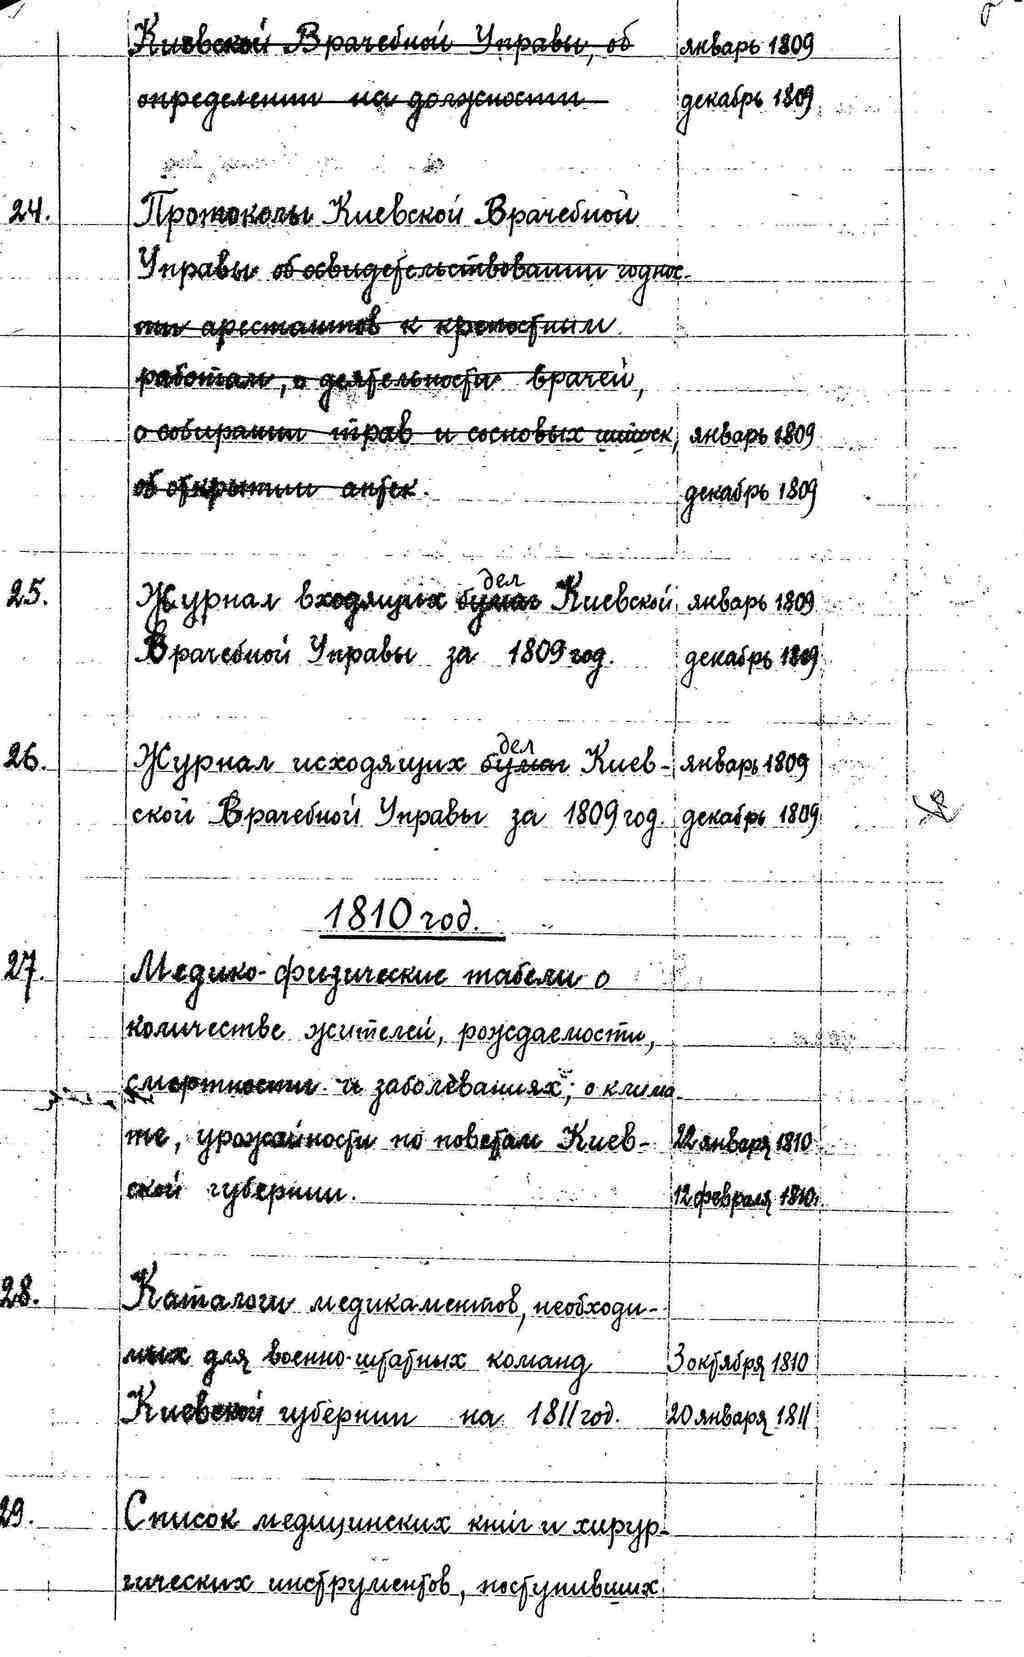 Киевской Врачебной Управы, об январь 1809
определении на должности декабрь 1809
24. Протоколы Киевской Врачебной
Управы об освидетельствовании годнос-
ти арестантов к крепостным
работам, о деятельности врачей,
о собирании трав и сосновых шишек, январь 1809
об открытии аптек. декабрь 1809
дел
25. Журнал входящих бумаг Киевской январь 1809
Врачебной Управы за 1809 год. декабрь 1809
дел
26. Журнал исходящих бумаг Киев- январь 1809
ской Врачебной Управы за 1809 год. декабрь 1809
1810 год.
27. Медико-физические табели о
количестве жителей, рождаемости,
смертности и заболеваниях; о клима-
те, урожайности по поветам Киев- 22 января 1810
ской губернии. 12 февраля 1810
28. Каталоги медикаментов, необходи-
мых для военно-штатных команд 3 октября 1810
Киевской губернии на 1811 год. 20 января 1811
29. Список медицинских книг и хирур-
гических инструментов, поступивших